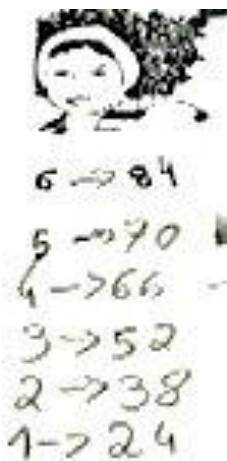 6 -> 84
5 -> 70
4 -> 66
3 -> 52
2 -> 38
1 -> 24